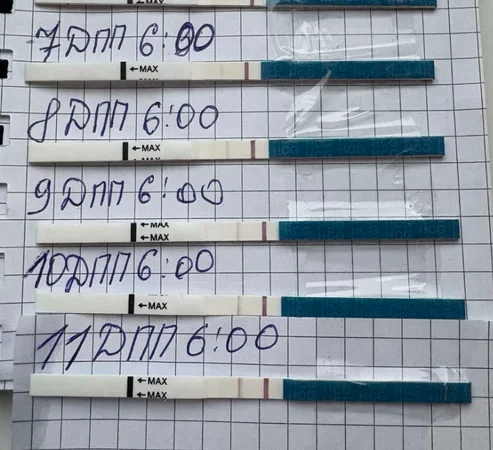 7ДПП 6:00
←MAX
8ДПП 6:00
←MAX
9ДПП 6:00
←MAX
←MAX
10ДПП 6:00
←MAX
11ДПП 6:00
←MAX
←MAX